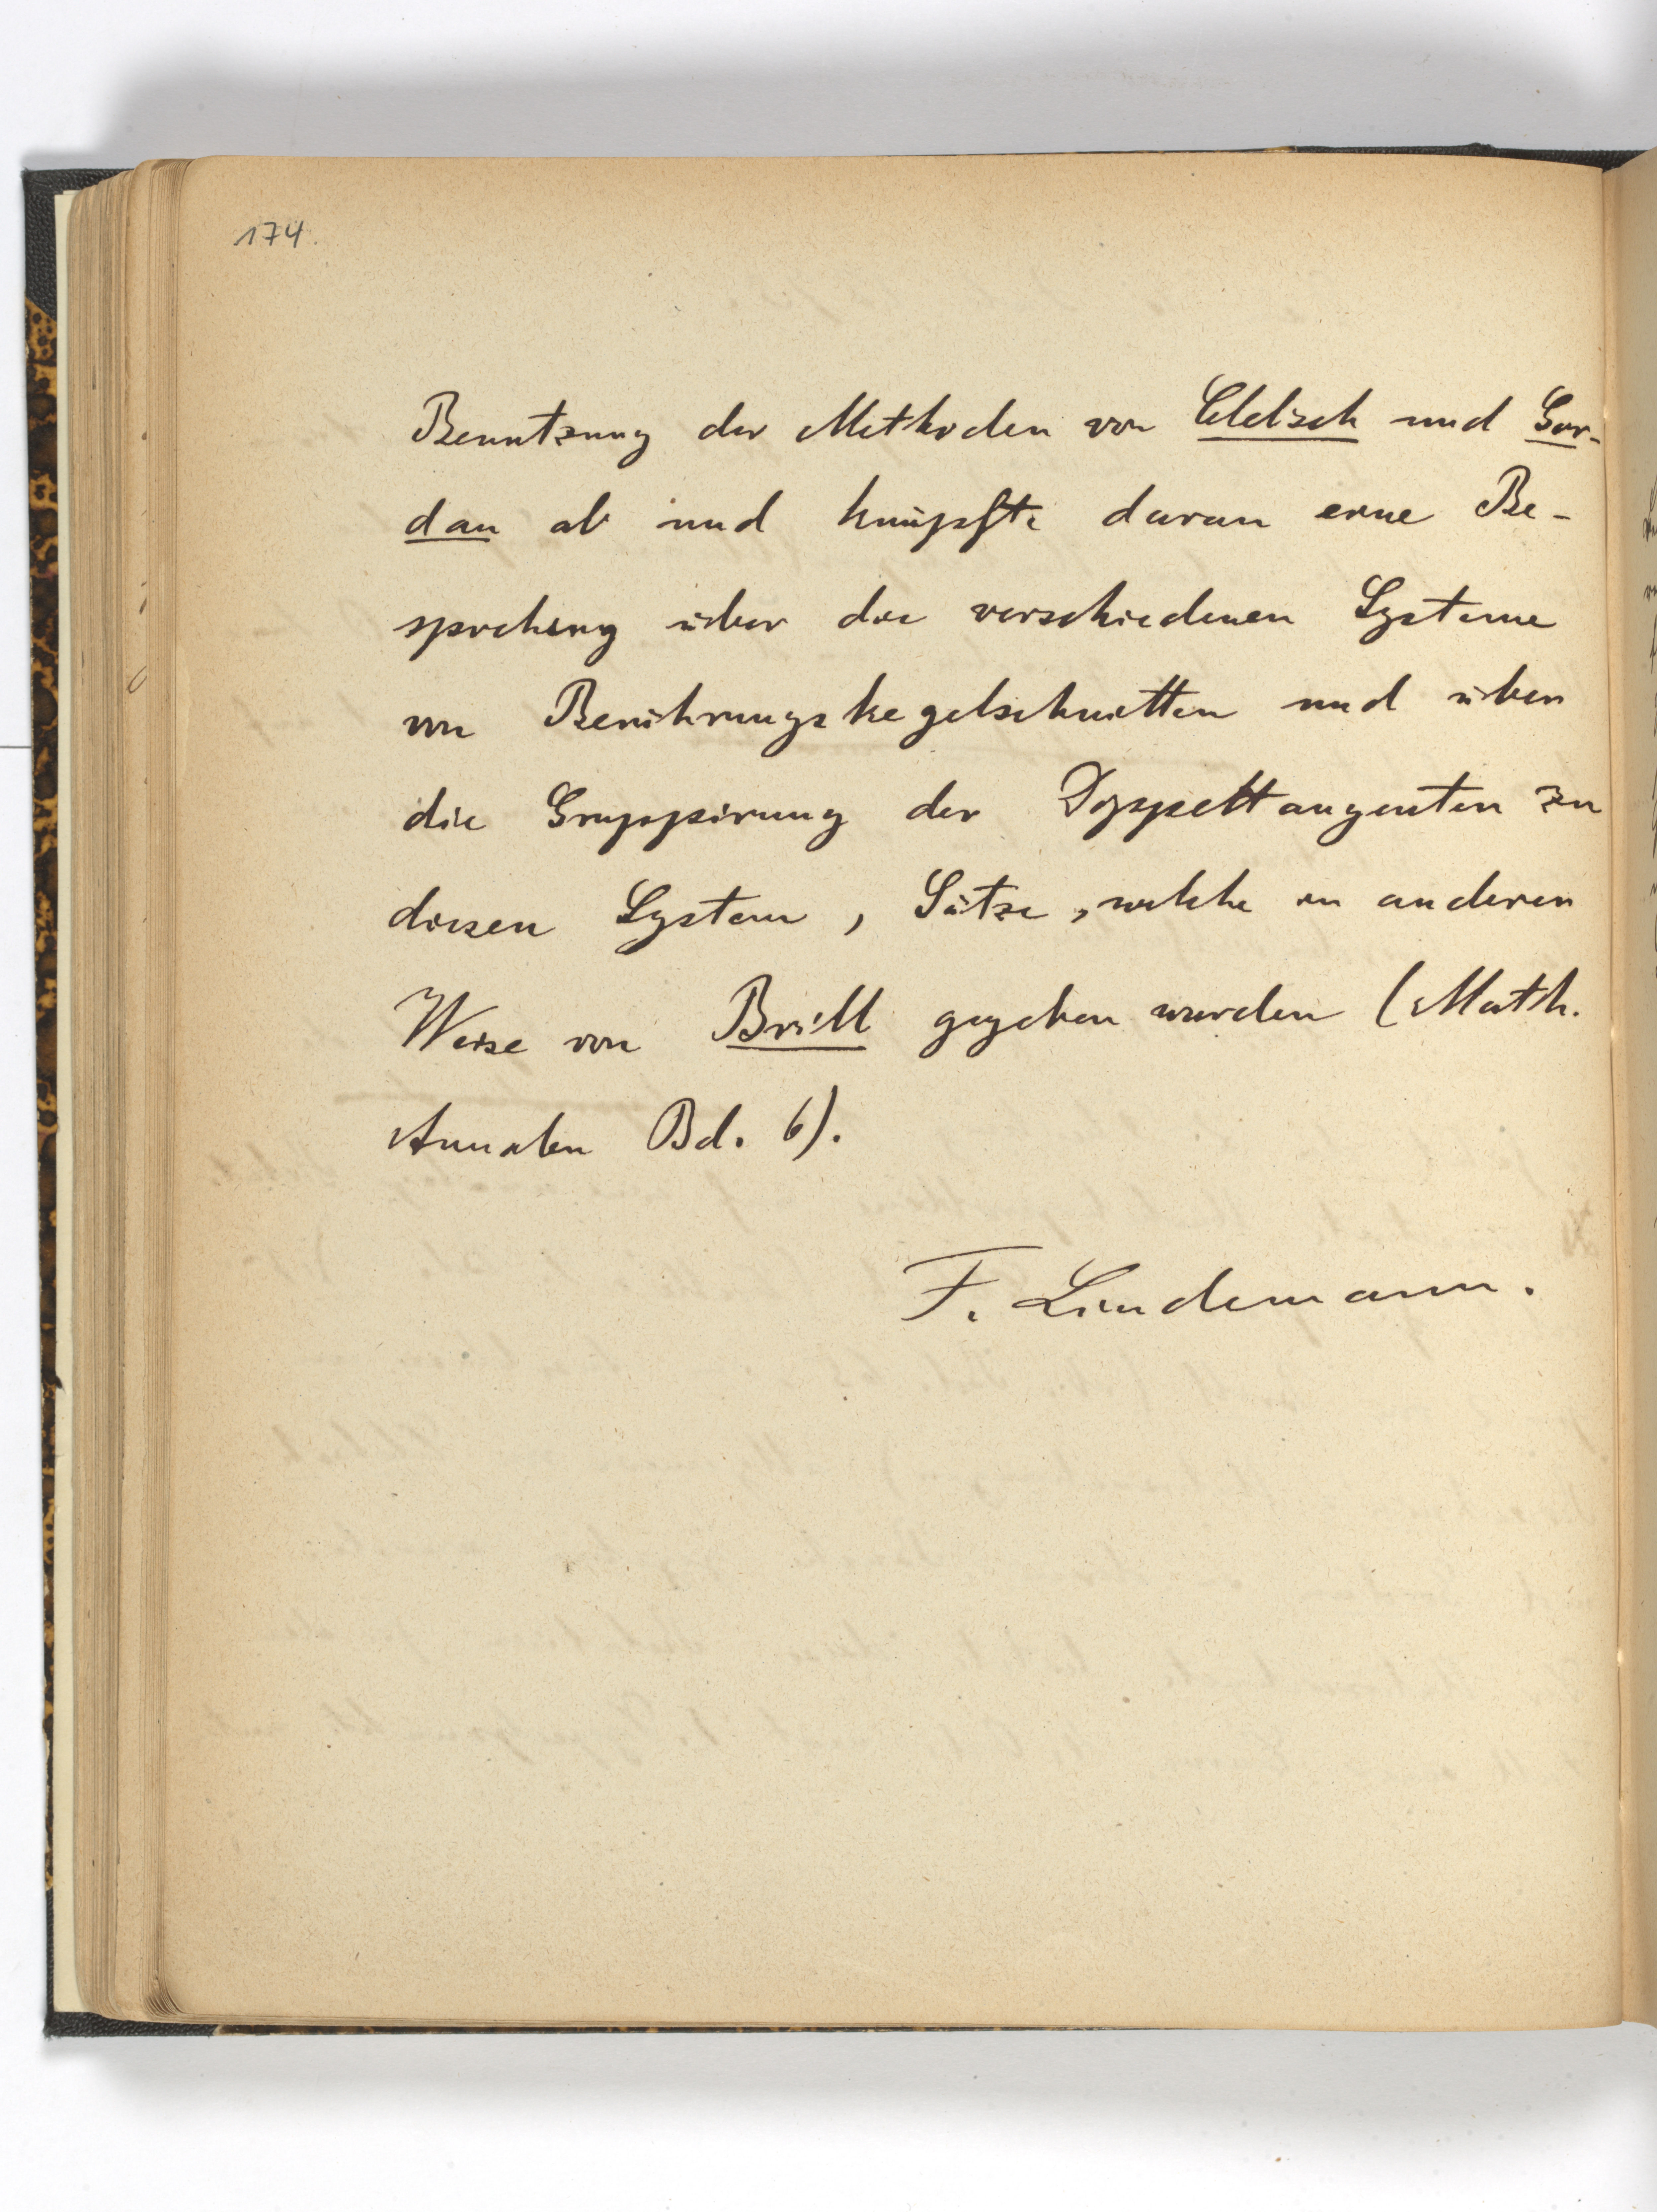 174.
Benutzung der Methoden von Clebsch und Gor-
dan ab und knüpfte daran eine Be-
sprechung über die verschiedenen Systeme
von Berührungskegelschnitten und über
die Gruppirung der Doppeltangenten zu
diesen System, Sätze, welche in anderen
Weise von Brill gegeben wurden (Math.
Annalen Bd. 6).
F. Lindemann.